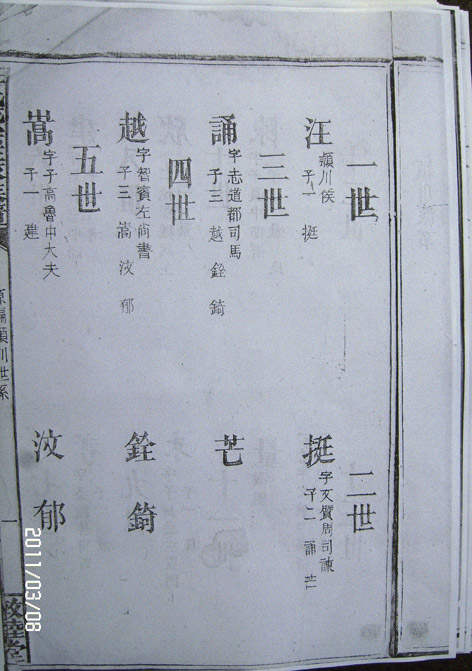 一世
汪
潁川侯
子一 挺
二世
挺
字文質周司諫
子二 誦 芒
三世
誦
字志道都司馬
子三 越 銓 錡
芒
四世
越
字智賓左尙書
子三 嵩 汶 郁
銓 錡
五世
嵩
字子高魯中大夫
子一 建
汶 郁
原編潁川世系
一
敦睦堂
2011/03/08